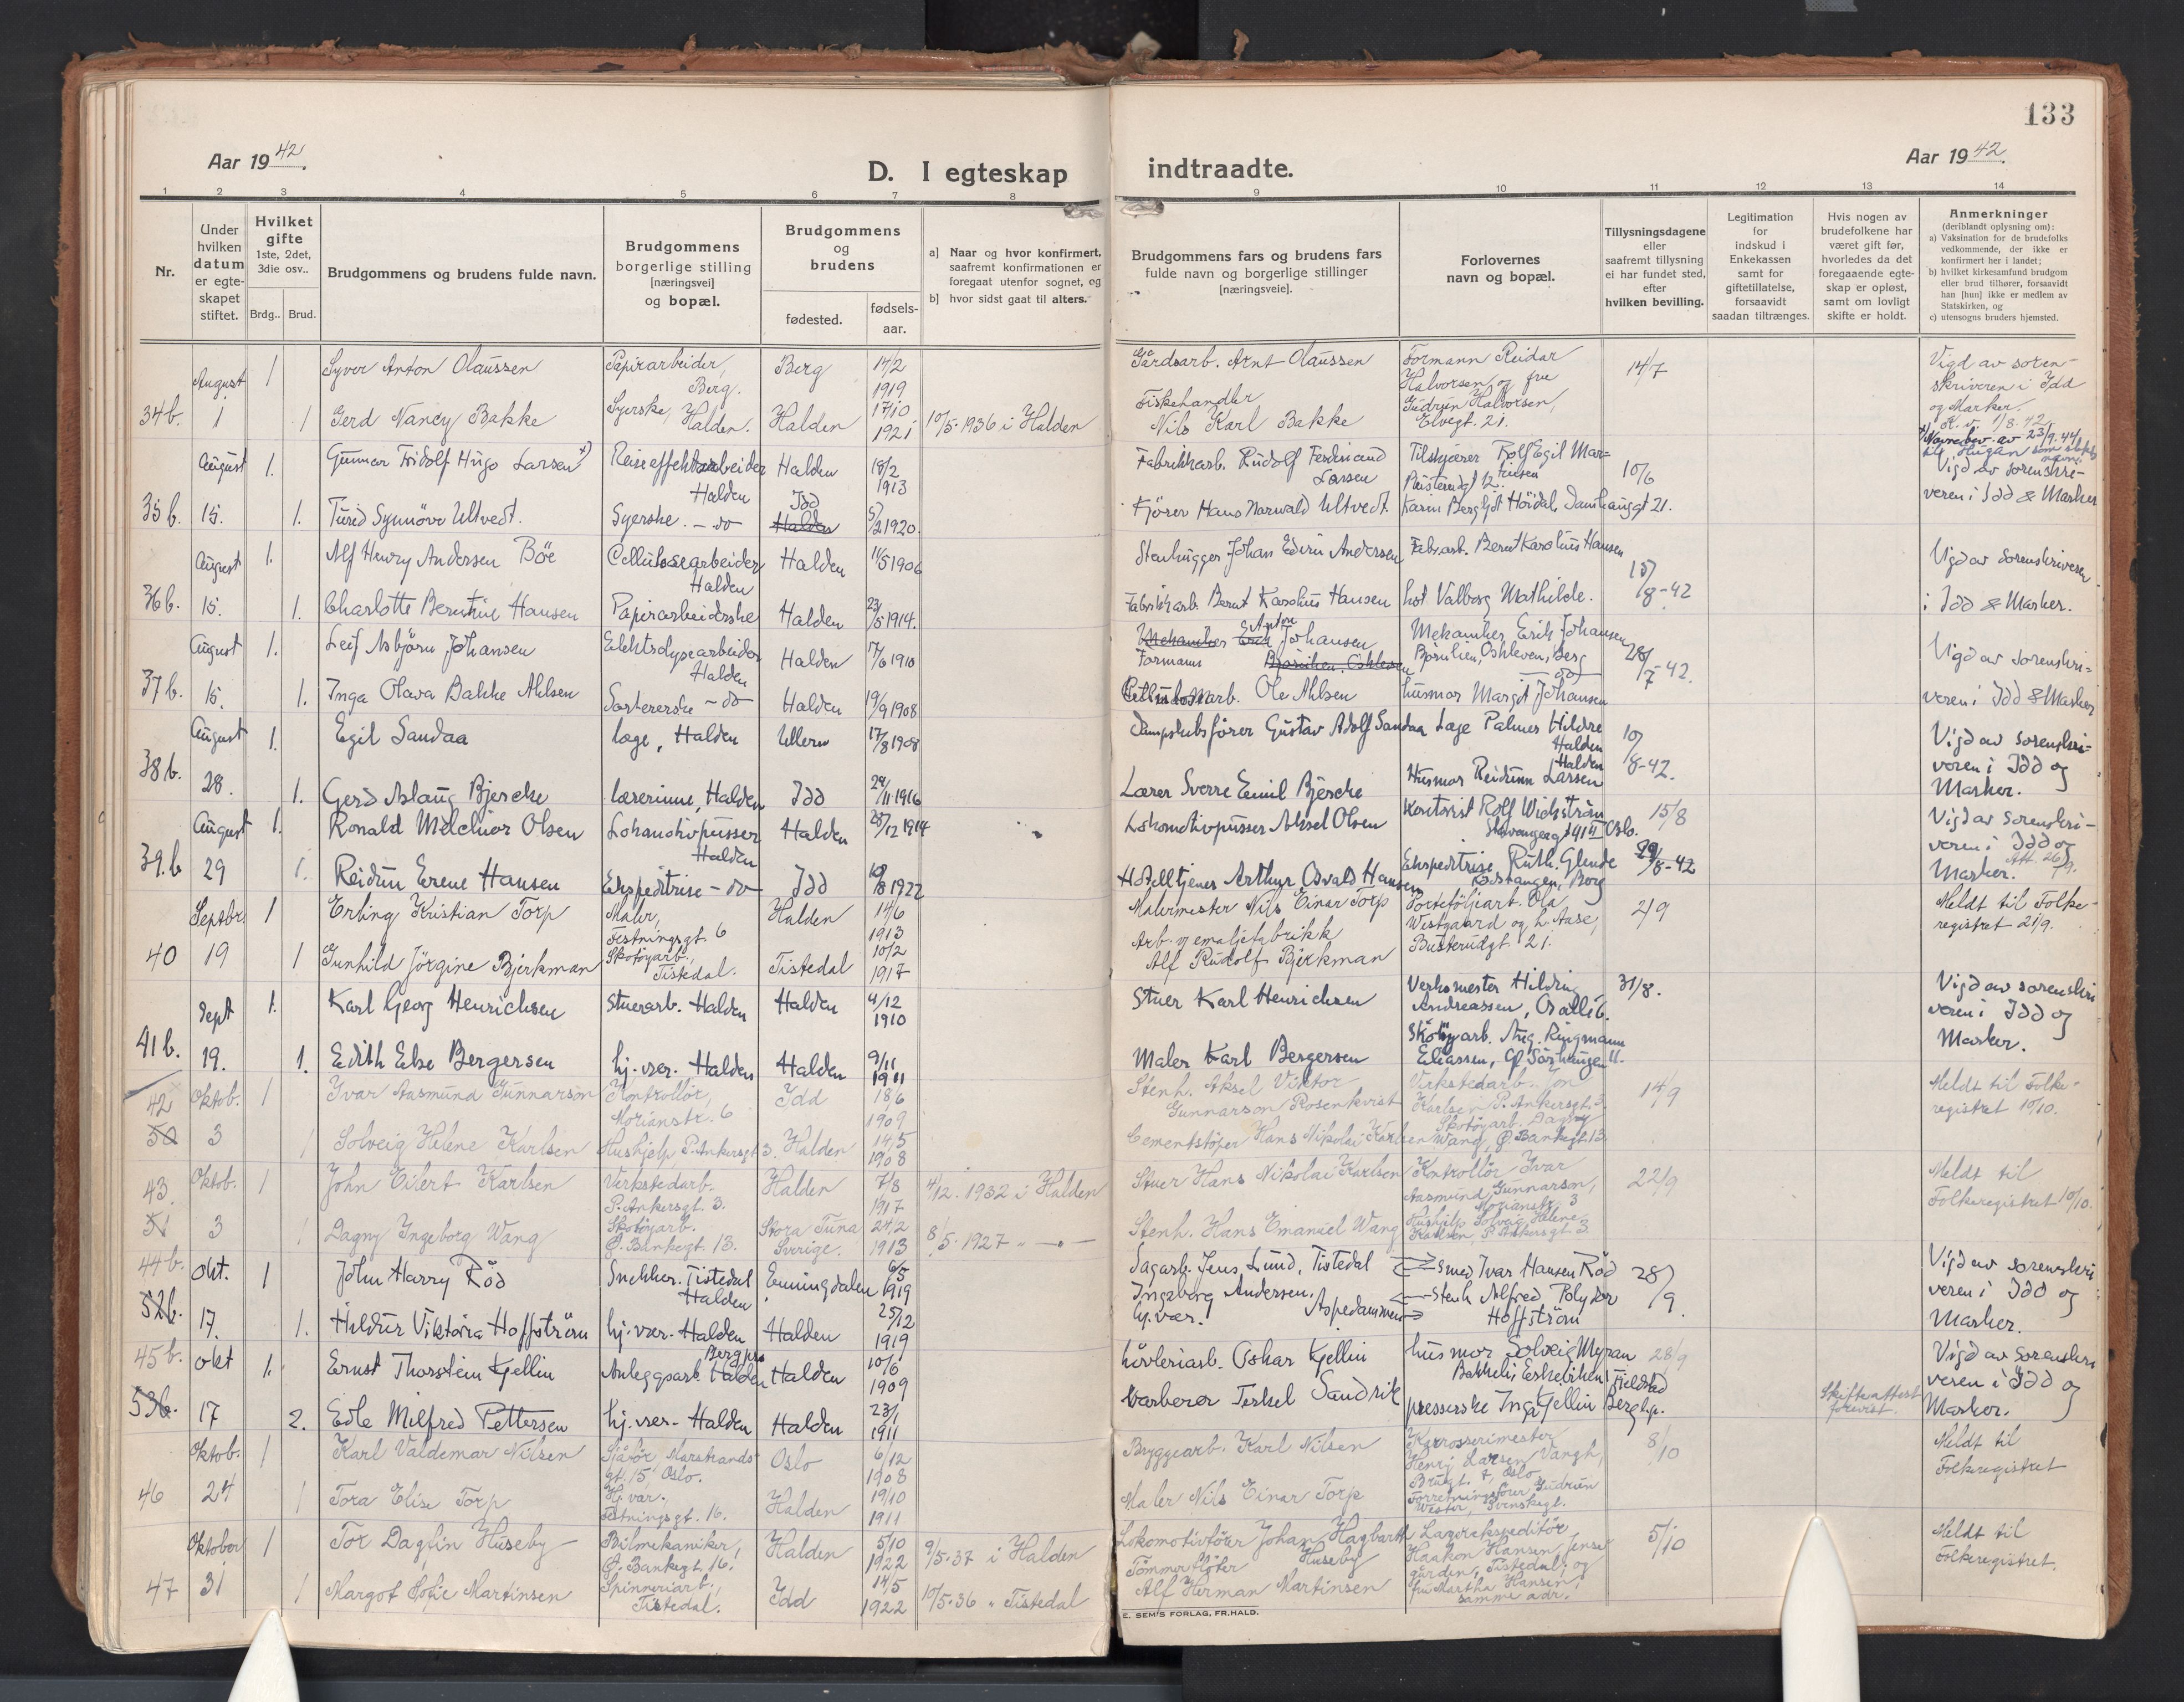 133
Aar 1942.
D. I egteskap indtraadte.
Aar 1942.
1 2 3 4 5 6 7 8 9 10 11 12 13 14
Nr.
Under hvilken datum er egteskapet stiftet.
Hvilket gifte 1ste, 2det, 3die osv..
Brdg.. Brud.
Brudgommens og brudens fulde navn.
Brudgommens borgerlige stilling [næringsvei] og bopæl.
Brudgommens og brudens
fødested.
fødsels-aar.
a] Naar og hvor konfirmert, saafremt konfirmationen er foregaat utenfor sognet, og
b] hvor sidst gaat til alters.
Brudgommens fars og brudens fars fulde navn og borgerlige stillinger [næringsveie].
Forlovernes navn og bopæl.
Tillysningsdagene eller saafremt tillysning ei har fundet sted, efter hvilken bevilling.
Legitimation for indskud i Enkekassen samt for giftetillatelse, forsaavidt saadan tiltrænges.
Hvis nogen av brudefolkene har været gift før, hvorledes da det foregaaende egteskap er opløst, samt om lovligt skifte er holdt.
Anmerkninger (deriblandt oplysning om):
a) Vaksination for de brudefolks vedkommende, der ikke er konfirmert her i landet;
b) hvilket kirkesamfund brudgom eller brud tilhører, forsaavidt han [hun] ikke er medlem av Statskirken, og
c) utensogns bruders hjemsted.
August 1 Syver Anton Olaussen Papirarbeider, Berg. Berg 14/2 1919 Gårdsarb. Arnt Olaussen Formann Reidar Halvorsen og fru 14/7 Vigd av sorenskriveren i Idd og Marker.
34b. 1 1 Gerd Nancy Bakke Syerske, Halden. Halden 17/10 1921 10/5-1936 i Halden Fiskehandler Nils Karl Bakke Gudrun Halvorsen, Elvegt. 21.
August 1. Gunnar Fridolf Hugo Larsen +) Reiseeffektarbeider Halden Halden 18/2 1913 Fabrikkarb. Rudolf Ferdinand Larsen Tilskjærer Rolf Egil 10/6 Vigd av sorenskriveren i Idd & Marker
35b. 15. 1. Turid Synnöve Ultvedt. Syerske - do Idd Halden 5/2 1920. Kjörer Hans Narwald Ultvedt. Karin Bergljot Höidal, 21.
August 1. Alf Henry Andersen Böe Cellulosearbeider Halden Halden 11/5 1906 Stenhugger Johan Edvin Andersen Fabr.arb. Bernt Karolius Hansen 15/8-42 Vigd av sorenskriveren i Idd & Marker.
36b. 15. 1. Charlotte Berntine Hansen Papirarbeiderske Halden 23/5 1914. Fabrikkarb. Bernt Karolius Hansen hst Valborg Mathilde.
August 1. Leif Asbjörn Johansen Elektrolysearbeider Halden Halden 17/6 1910 Mekaniker Erik Anton Johansen Formann Mekaniker Erik Johansen Berg 28/7-42. Vigd av sorenskriveren i Idd & Marker
37b. 15. 1. Inga Olava Bakke Ahlsen Sortererske - do Halden 19/9 1908 arb. Ole Ahlsen husmor Margit Johansen
August 1. Egil Sandaa læge, Halden Ullern 17/8 1908 Dampskibsförer Gustav Adolf Sandaa Læge Palmer Hildre Halden 10/8-42. Vigd av sorenskriveren i Idd og Marker.
38b. 28. 1. Gerd Aslaug Bjercke lærerinne, Halden Idd 29/11 1916 Lærer Sverre Emil Bjercke Husmor Reidunn Larsen Halden
August 1. Ronald Melchior Olsen Lokomotivpusser Halden Halden 25/12 1914 Lokomotivpusser Aksel Olsen Kontorist Rolf Wickström Oslo. 15/8 Vigd av sorenskriveren i Idd og Marker.
39.b 29 1. Reidun Erene Hansen Ekspeditrise - do Idd 10/8 1922 Hotelltjener Arthur Osvald Hansen Ekspeditrise Ruth Glende 29/8-42
Septbr. 1 Erling Kristian Torp Maler, Festningsgt. 6 Halden 14/6 1913 Malermester Nils Einar Torp Porteföljearb. Ola Westgaard og h. Aase, Busterudgt. 21. 2/9 Meldt til Folkeregistret 21/9.
40 19 1 Gunhild Jörgine Bjerkman Skotöyarb., Tistedal. Tistedal 10/2 1917 Arb. v emaljefabrikk Alf Rudolf Bjerkman
Sept 1. Karl Georg Henrichsen Stuerarb. Halden Halden 4/12 1910 Stuer Karl Henrichsen Verksmester Hilding Andreassen, 31/8. Vigd av sorenskriveren i Idd og Marker.
41b. 19. 1. Edith Else Bergersen hj.vær. Halden Halden 9/11 1911 Maler Karl Bergersen Skotöyarb. Aug. Ringmann Eliassen,
42 Oktob. 1 Ivar Aasmund Gunnarson Kontrollör, Morianstr. 6 Idd 18/6 1909 Stenh. Aksel Viktor Gunnarson Rosenkvist Verkstedarb. Jon Karlsen, P. Ankersgt. 3. 14/9 Meldt til Folkeregistret 10/10.
50 3 1 Solveig Helene Karlsen Hushjelp, P. Ankersgt 3. Halden 14/5 1908 Cementstöper Hans Nikolai Karlsen Skotöyarb. Dagny Wang, O. Bankegt. 13.
43. Oktob. 1 John Eilert Karlsen Verkstedarb. P. Ankersgt. 3. Halden 7/8 1917 4/12. 1932 i Halden Stuer Hans Nikolai Karlsen Kontrollör Ivar Aasmund Gunnarson, Morianstr. 3 22/9 Meldt til Folkeregistret 10/10.
51 3 1 Dagny Ingeborg Wang Skotöyarb. O. Bankegt. 13. Stora Tuna Sverige. 24/2 1913 8/5-1927 " Stenh. Hans Emanuel Wang Hushjelp Solveig Helene Karlsen, P. Ankersgt. 3.
44b. Okt. 1 John Harry Röd Snekker. Tistedal Halden Enningdalen 6/5 1919 Sagarb. Jens Lund, Tistedal Smed Ivar Hansen Röd 28/9. Vigd av sorenskriveren i Idd og Marker.
52b. 17. 1. Hildur Viktoria Hoffström hj.vær. Halden Halden 25/12 1919 Ingeborg Andersen, hj.vær. Aspedammen Stenh Alfred Polykar Hoffström
45b. Okt 1. Ernst Thorstein Kjellin Anleggsarb. Halden Halden 10/6 1909 hövleriarb. Oskar Kjellin husmor Solveig Myran 28/9 Vigd av sorenskriveren i Idd og Marker.
53b. 17 2. Edle Milfred Pettersen hj.vær. Halden Halden 23/1 1911 Varberer Terkel Sandvik presserske Inga Kjellin Berg Skifteattest forevist.
Oktob. 1 Karl Valdemar Nilsen Sjåför, Marstrandsgt. 15, Oslo. Oslo 6/12 1908 Bryggearb. Karl Nilsen Karosserimester Henry Larsen Vangh, Oslo 8/10 Meldt til Folkeregistret
46 24 1 Tora Elise Torp Hj.vær. Festningsgt. 16. Halden 19/10 1911 Maler Nils Einar Torp Forretningsförer Gudrun Wester, Svenskegt.
Oktober 1 Tor Dagfin Huseby Bilmekaniker, O. Bankegt. 16. Halden 5/10 1922 9/5-37 i Halden Lokomotivförer Johan Hagbarth Huseby Lagerekspeditör Haakon Hansen, Jensegården, Tistedal; og 5/10 Meldt til Folkeregistret.
47 31 1 Margot Sofie Martinsen Spinneriarb., Tistedal. Idd 14/5 1922 10/5-36 " Tistedal Tömmerflöter Alf Herman Martinsen fru Martha Hansen, samme adr.
E. SEM'S FORLAG, FR.HALD.